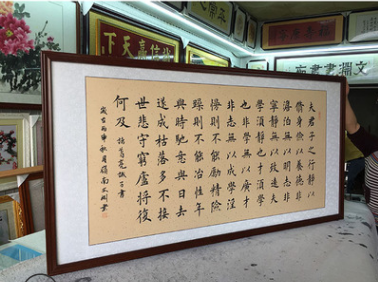 夫君子之行靜以
脩身儉以養德非
澹泊無以明志非
寧靜無以致遠夫
學須靜也才須學
也非學無以廣才
非志無以成學淫
慢則不能勵精險
躁則不能治性年
與時馳意與日去
遂成枯落多不接
世悲守窮廬將復
何及 諸葛亮誡子書
下天贏信以
文淵書畫